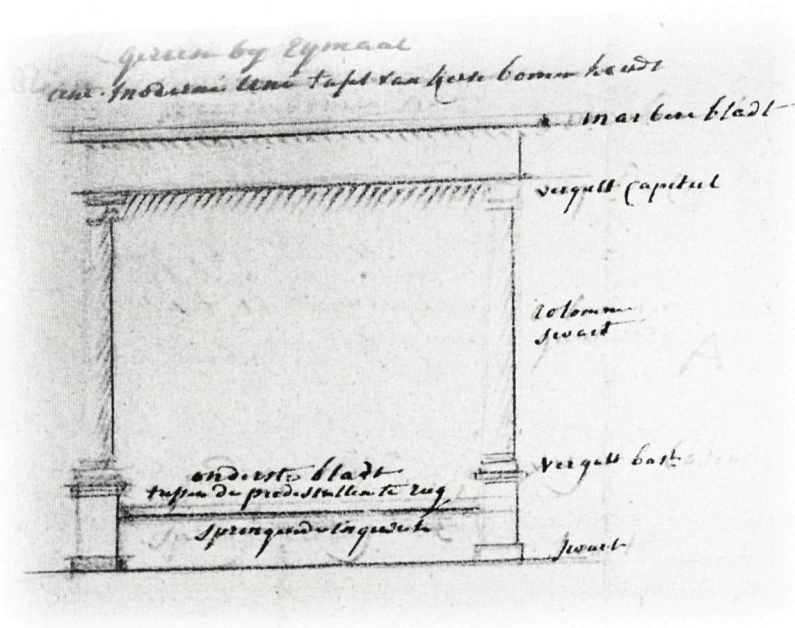 gesien by Eymael
Moderne tafel van kerse bomen houdt
marbere bladt
vergult capiteel
colomme
swart
vergult bast
onderste bladt
tussen de predestallen te rug
springende ingewerk
swart
A